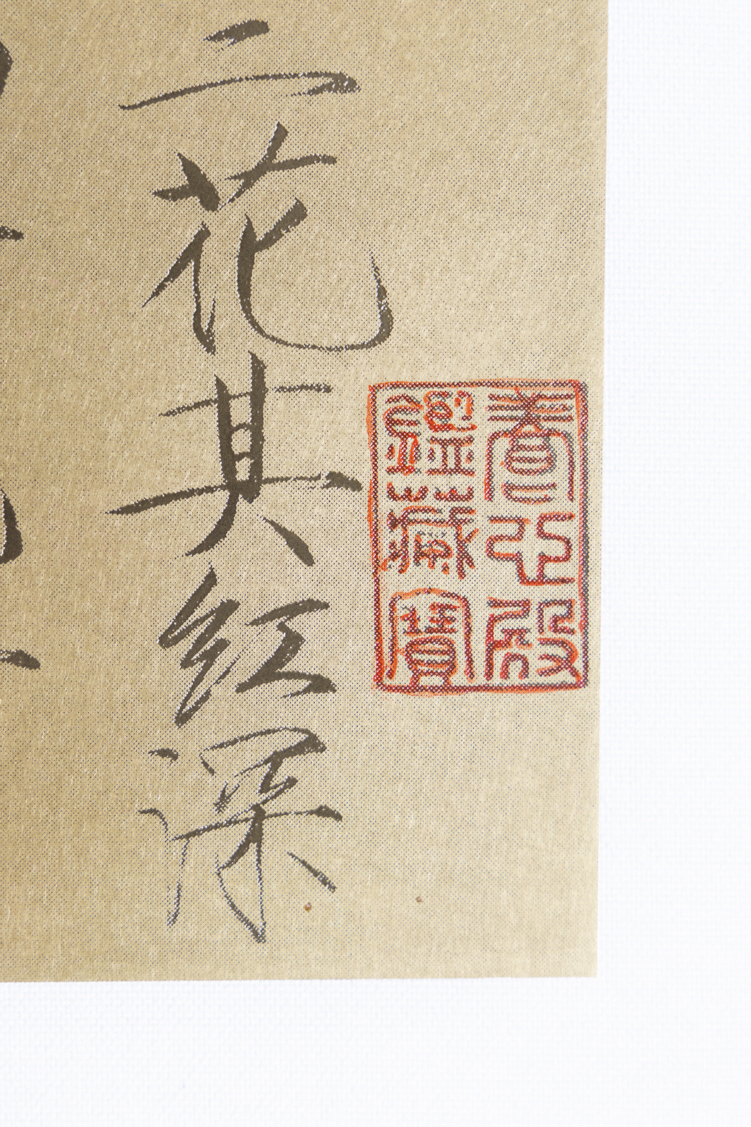 養心殿
鑑藏寶
二花其紅深